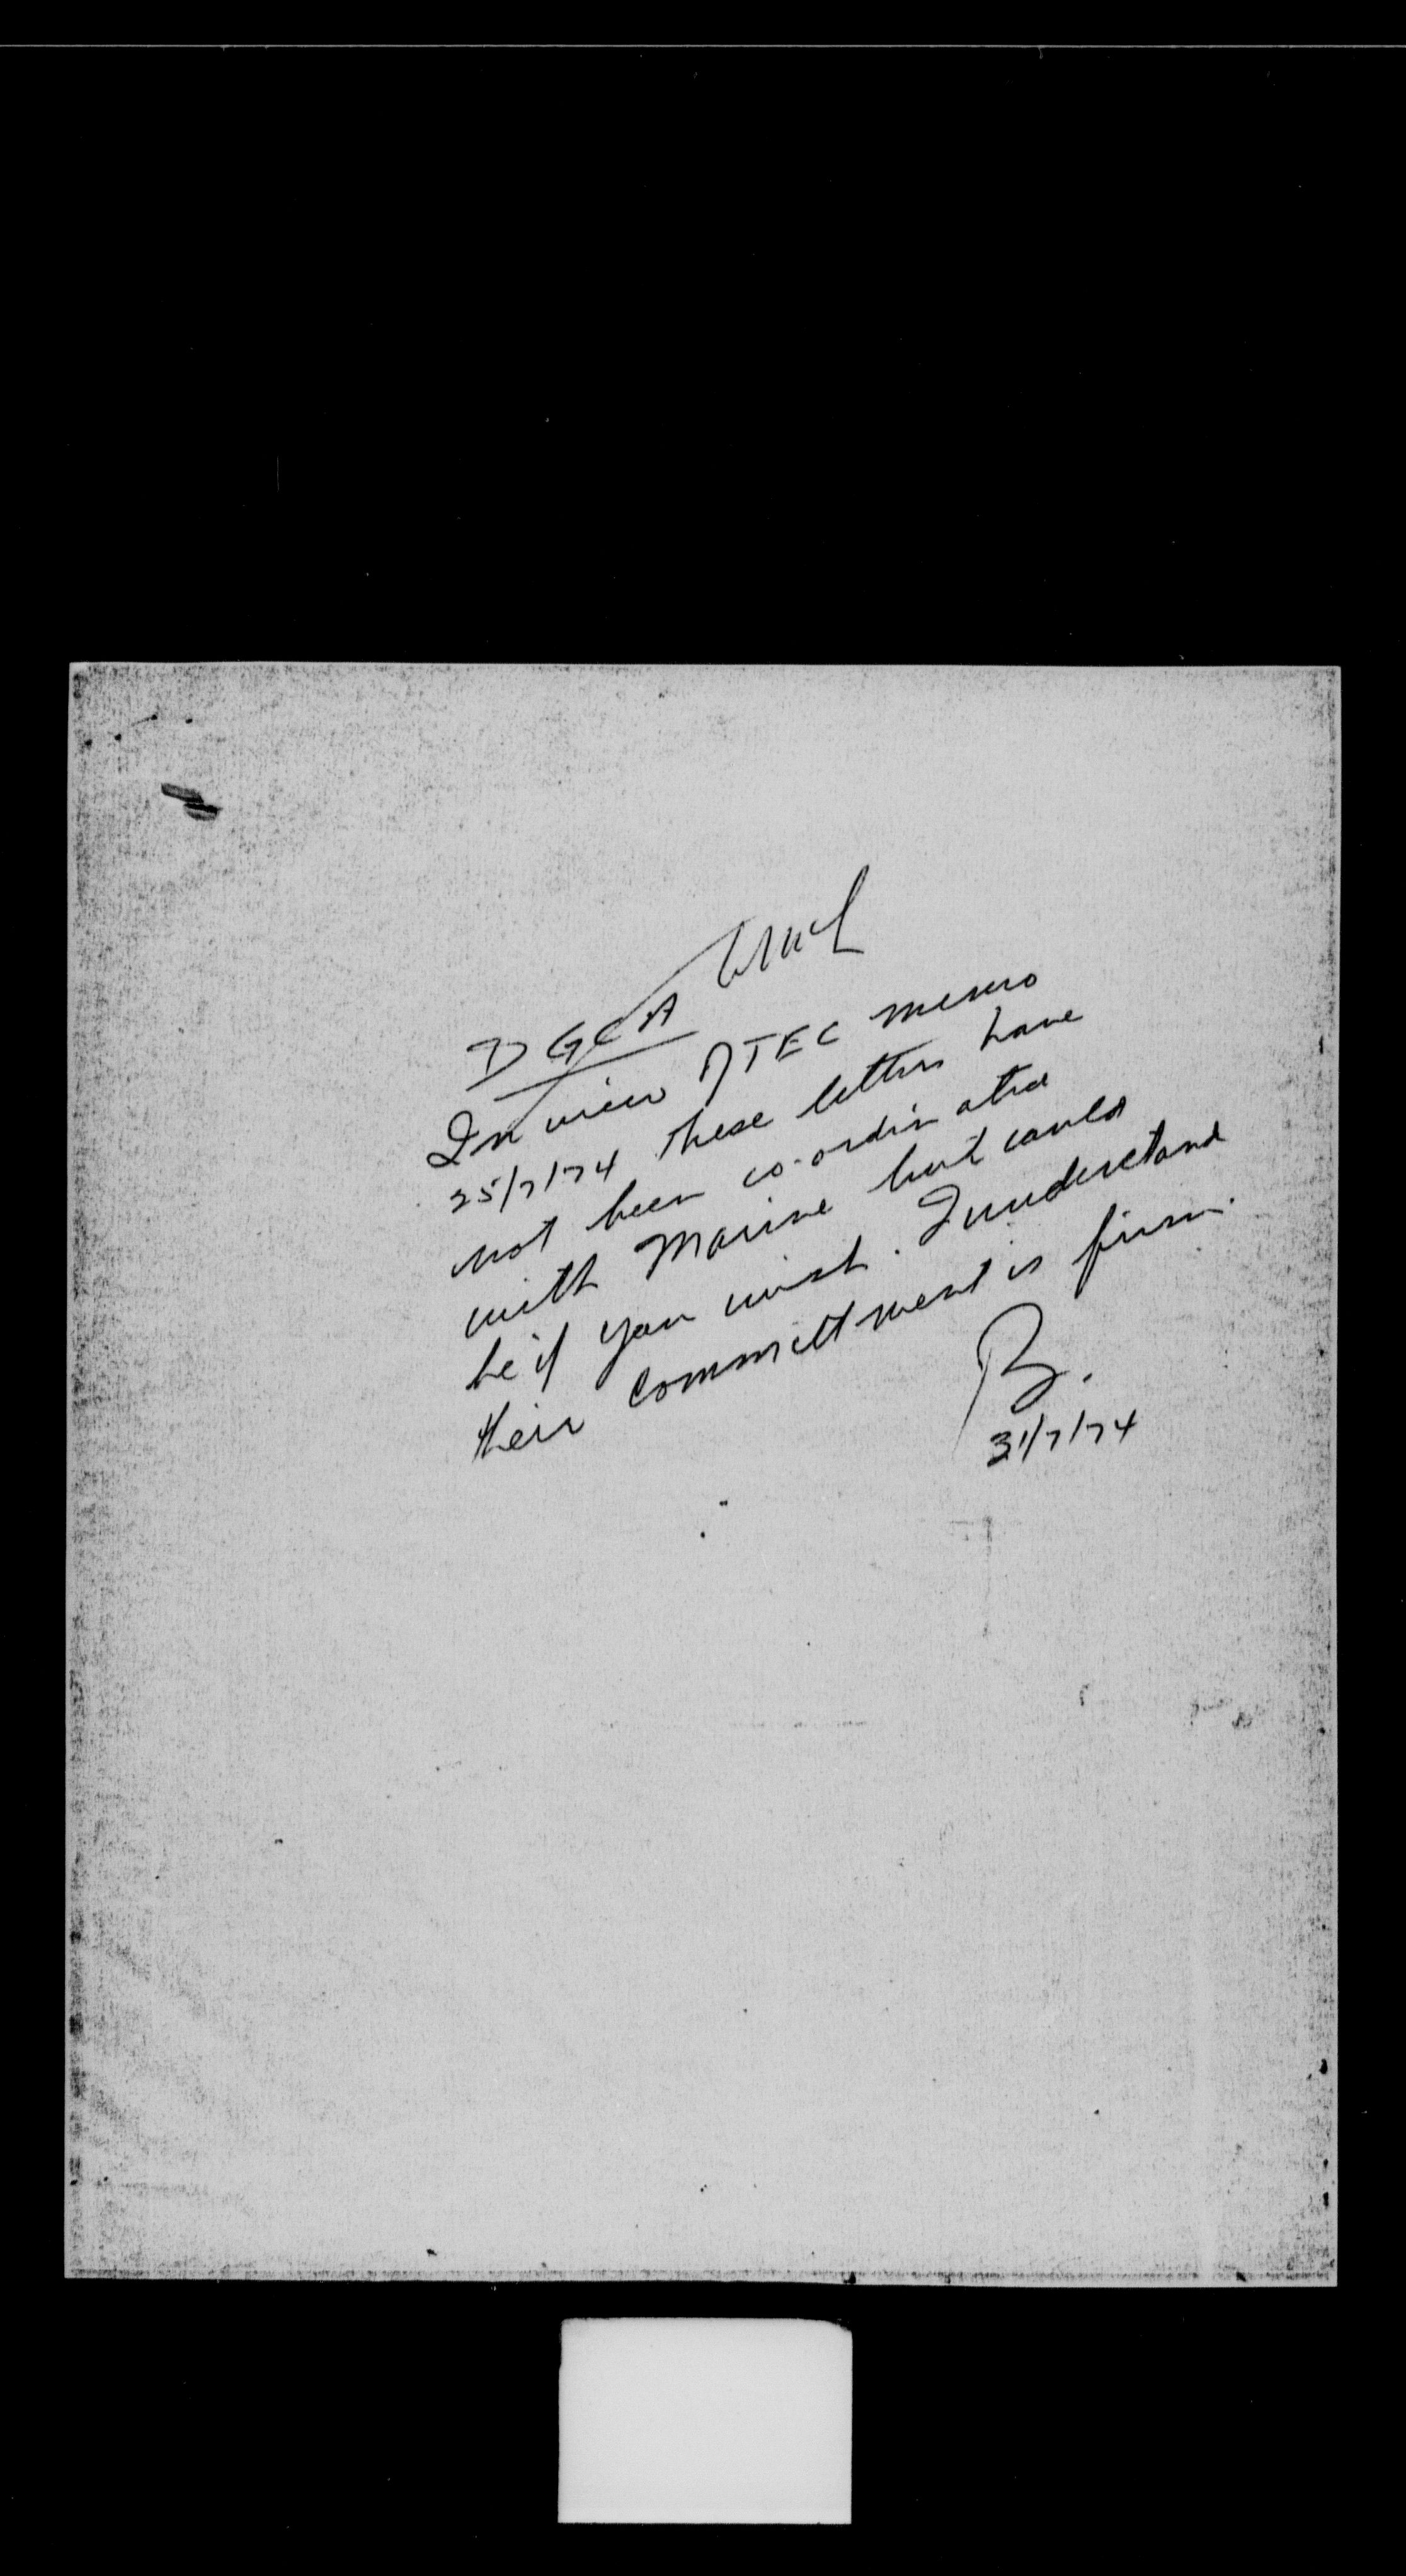 DGCA
In view DTEC memo
25/7/74 these letters have
not been co-ordinated
with Marine but could
be if you wish. I understand
their committment is firm.
B.
31/7/74